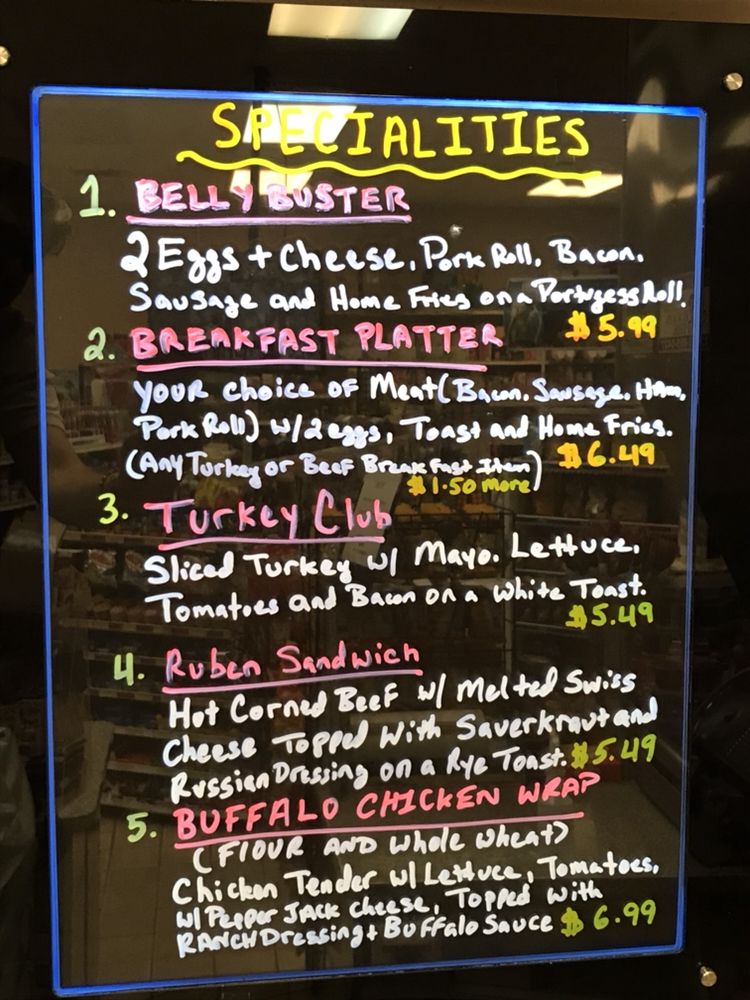 SPECIALITIES
1. BELLY BUSTER
2 Eggs + Cheese, Pork Roll, Bacon,
Sausage and Home Fries on a Portugess Roll.
$5.99
2. BREAKFAST PLATTER
YOUR choice OF Meat (Bacon, Sausage, HAm,
Pork Roll) w/2 eggs, Toast and Home Fries.
(Any Turkey or Beef BreakFast Item) $6.49
$1.50 more
3. Turkey Club
Sliced Turkey w/ Mayo. Lettuce,
Tomatoes and Bacon on a white Toast.
$5.49
4. Ruben Sandwich
Hot Corned BeeF w/ Melted Swiss
Cheese Topped With Saverkraut and
Russian Dressing on a Rye Toast. $5.49
5. BUFFALO CHICKEN WRAP
(FlOUR AND Whole Wheat)
Chicken Tender w/ Lettuce, Tomatoes,
w/ Pepper JACK cheese, Topped with
RANCH Dressing + BuFFalo Sauce $6.99